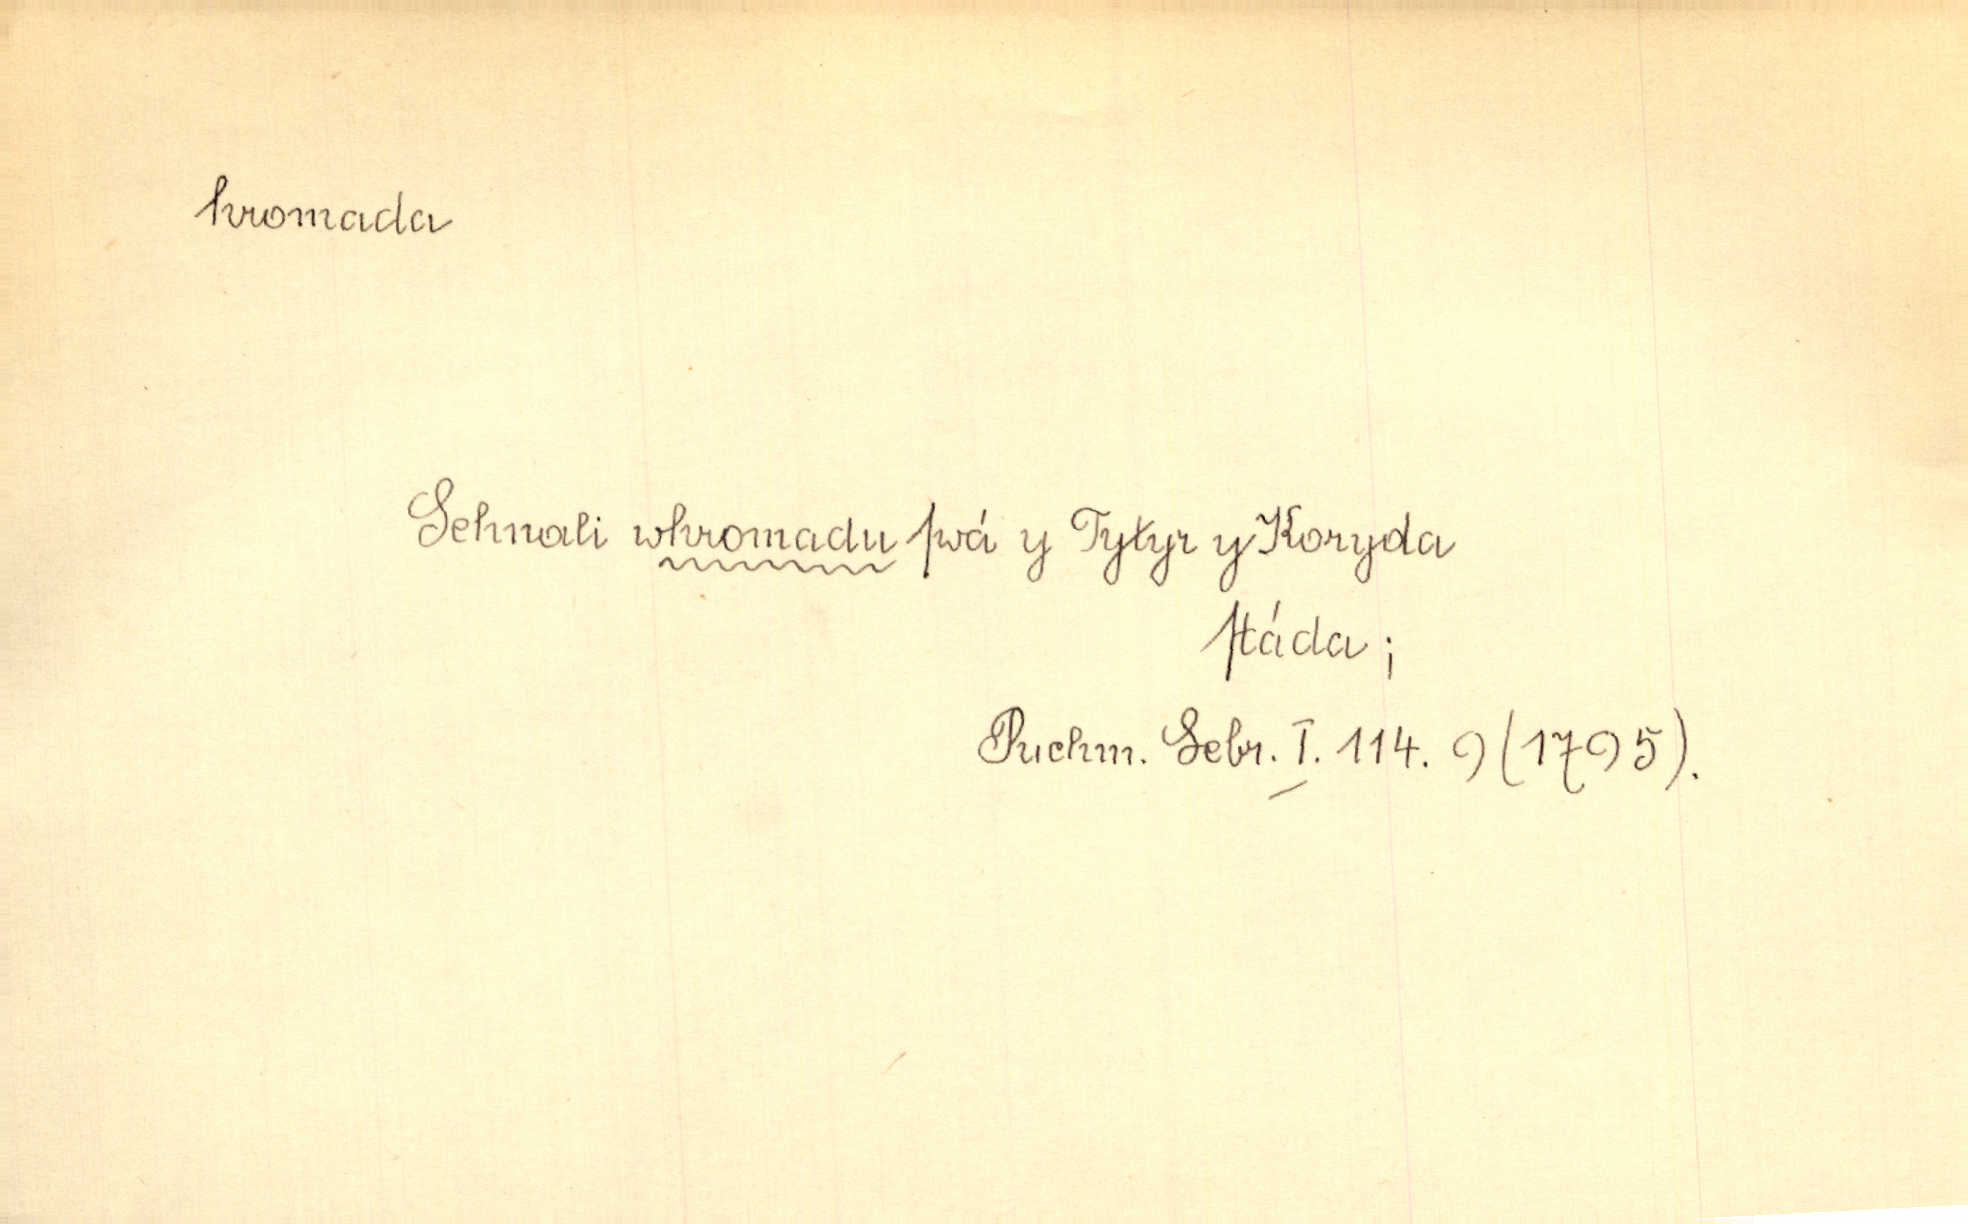 hromada
Sehnali whromadu ſwá y Tytyr y Koryda
ſtáda;
Puchm. Sebr. I. 114. 9 (1795).